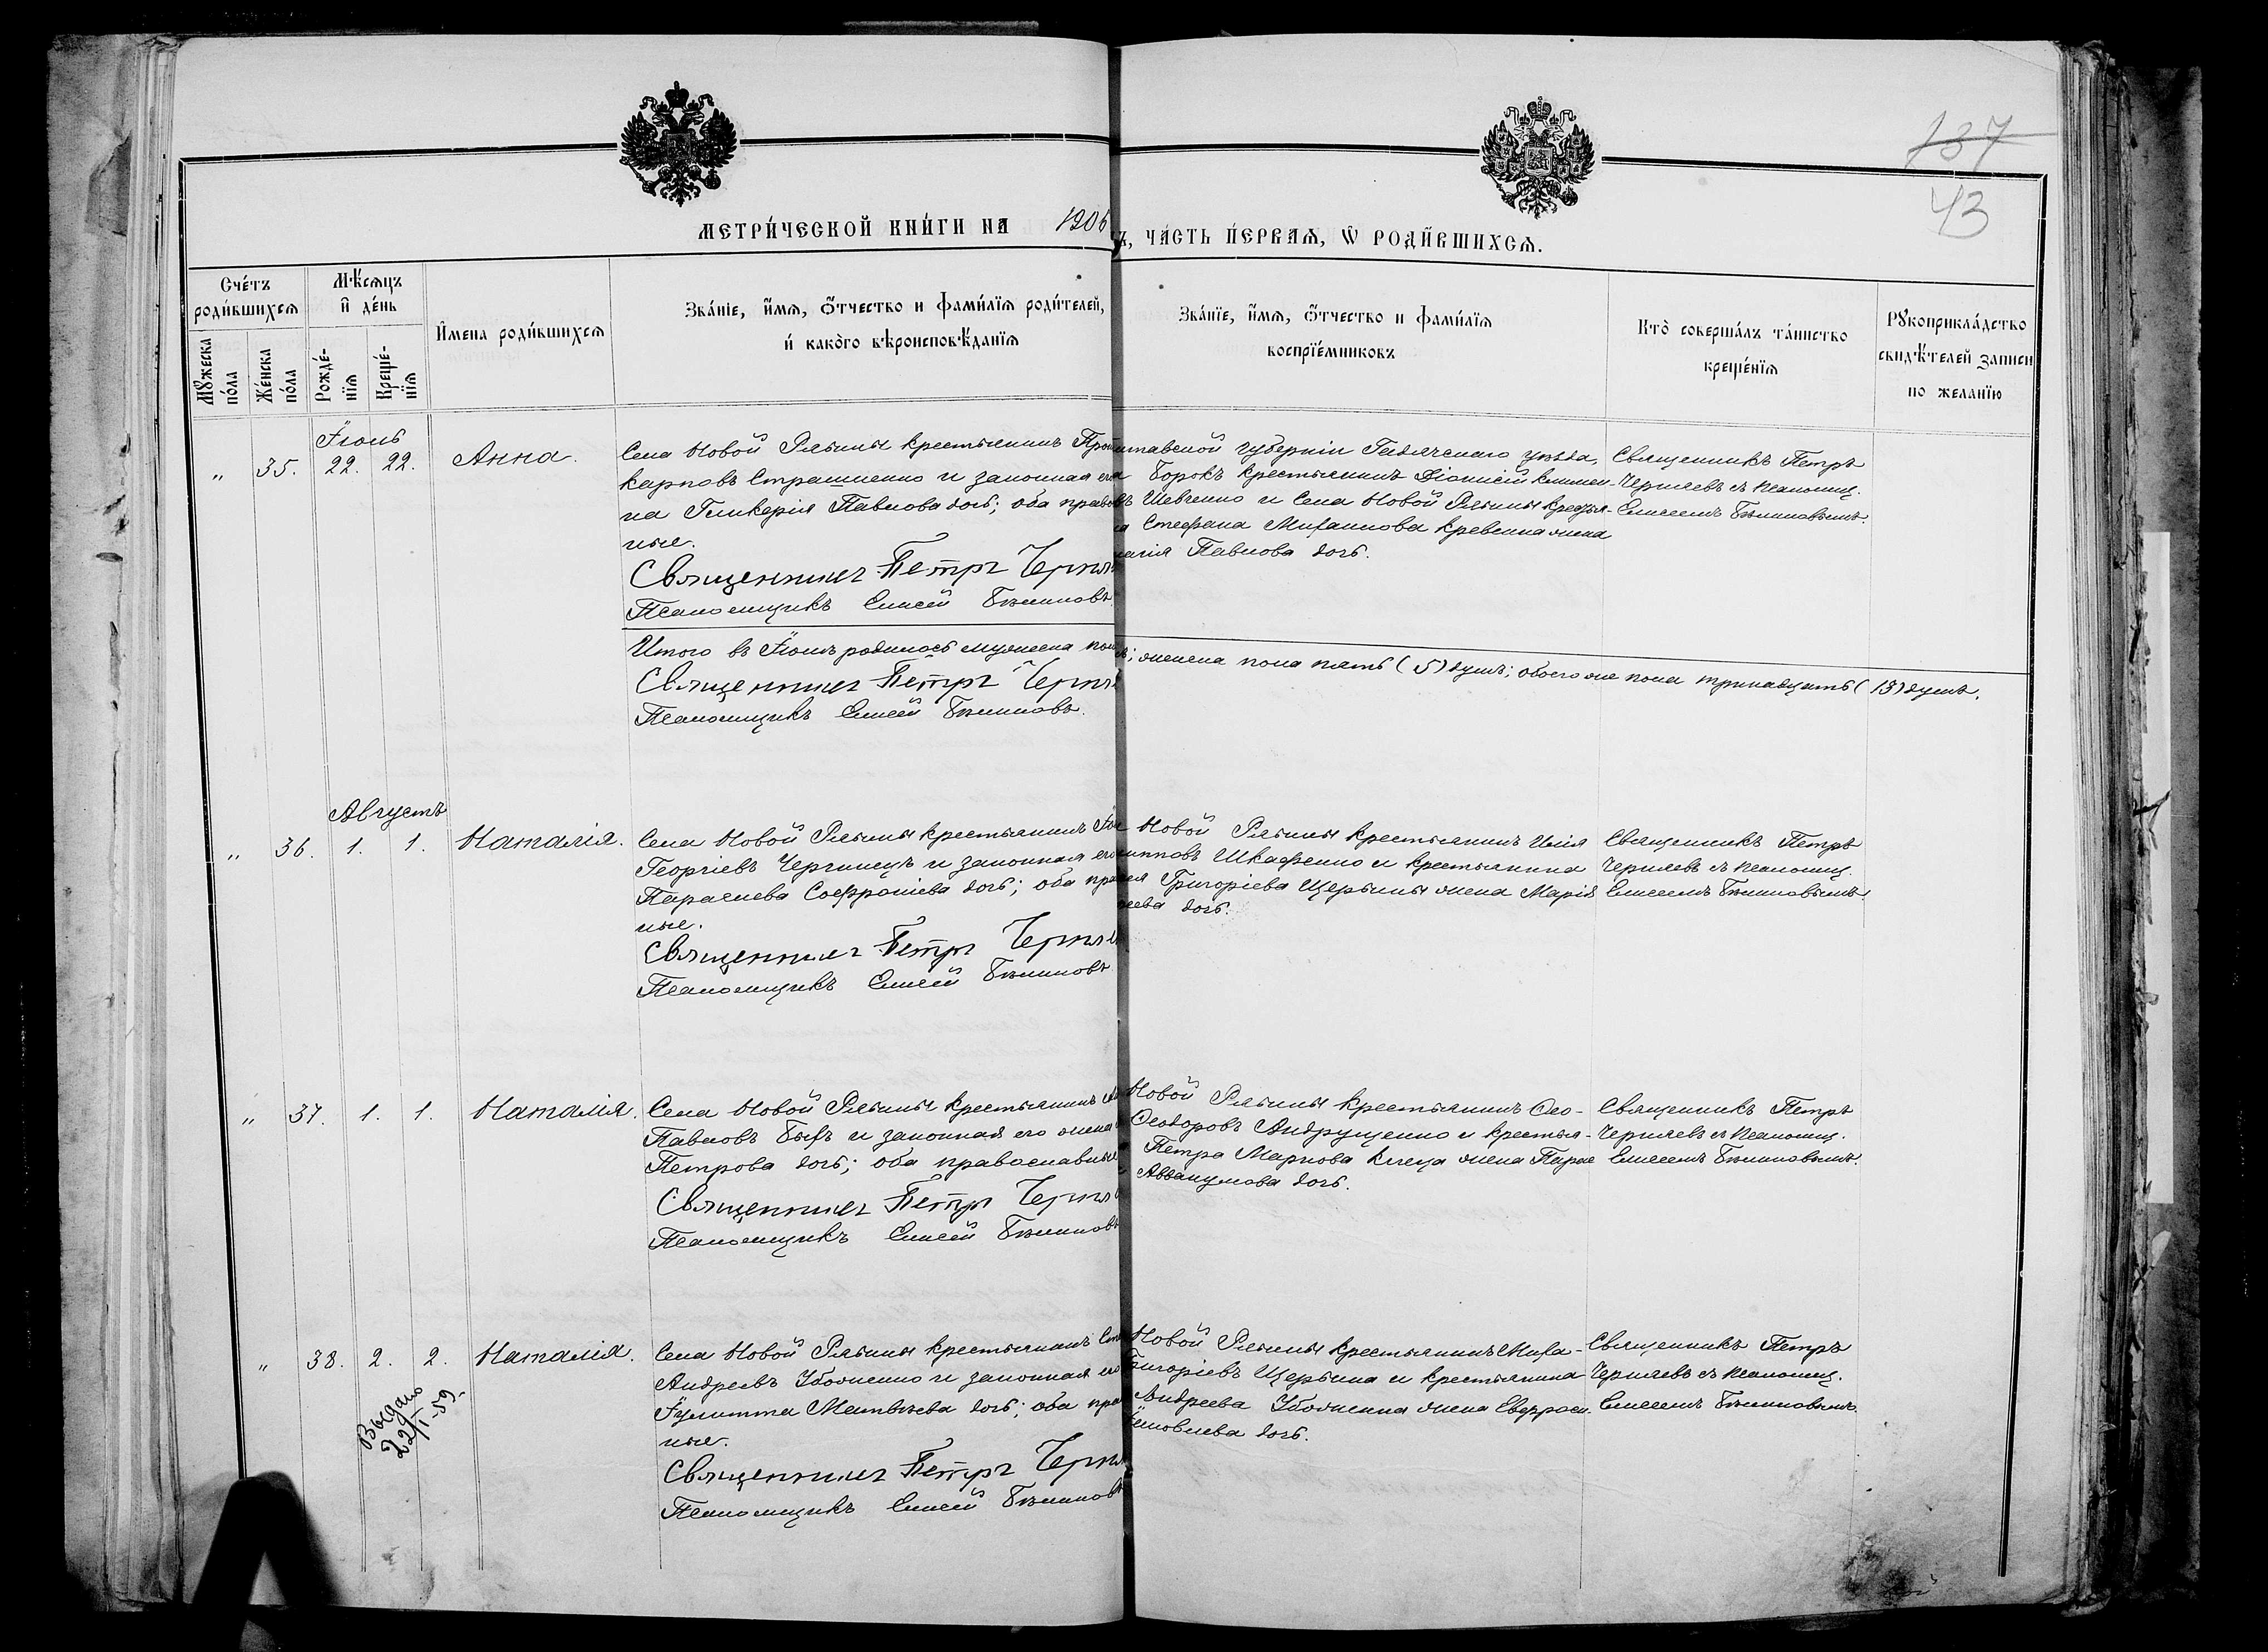 137
43
МЕТРИ́ЧЕСКОЙ КНИ́ГИ НА 1906
Ъ, ЧА́СТЬ ПЕ́РВАѦ, Ѡ РОДИ́ВШИХСѦ.
Сче́тъ родившихсѧ
Мѣ́сѧцъ и де́нь
Имена родившихсѧ
Зва́нїе, и́мѧ, ѻ́тчество и фами́лїѧ роди́телей,
и како́го вѣроисповѣ́данїѧ
Зва́нїе, и́мѧ, ѻ́тчество и фами́лїѧ
воспрїе́мниковъ
Кто̀ соверша́лъ та́инство
креще́нїѧ
Рꙋкоприкла́дство
свидѣ́телей записи
по желанїю
Мꙋжеска по́ла
Же́нска по́ла
Рожде́нїѧ
Креще́нїѧ
Іюль
„ 35. 22. 22. Анна.
Села Новой Рябины крестьянинъ
Карповъ Страшненко и законная его
на Гликерія Павлова дочь; оба правос
ные.
Священникъ Петръ Черня
Псаломщикъ Елисей Бѣлиновъ
тавской губерніи Гадячскаго уѣзда,
Борокъ крестьянинъ Діонисій Климен-
Шевченко и села Новой Рябины крестья-
Стефана Михаилова Кревсуна жена
Павлова дочь.
Священникъ Петръ
Черняевъ съ псаломщ.
Елисеемъ Бѣлиновымъ.
Итого въ Іюлѣ родилось мужеска пол
; женска пола пять (5) душъ; обоего же пола тринадцать (13) душъ.
Священникъ Петръ Черня
Псаломщикъ Елисей Бѣлиновъ.
Августъ
„ 36. 1. 1. Наталія.
Села Новой Рябины крестьянинъ
Георгіевъ Чергинецъ и законная его
Параскева Софроніева дочь; оба пра
ные.
Священникъ Петръ Черня
Псаломщикъ Елисей Бѣлиновъ
Новой Рябины крестьянинъ Илія
Шкафенко и крестьянина
Григоріева Щербины жена Марія
дочь.
Священникъ Петръ
Черняевъ съ псаломщ.
Елисеемъ Бѣлиновымъ.
„ 37. 1. 1. Наталія.
Села Новой Рябины крестьянинъ
Павловъ Быкъ и законная его жена
Петрова дочь; оба православные
Священникъ Петръ Черня
Псаломщикъ Елисей Бѣлиновъ
Новой Рябины крестьянинъ Ѳео-
Ѳеодоровъ Андрущенко и крестья-
Петра Маркова жена Парас
Аввакумова дочь.
Священникъ Петръ
Черняевъ съ псаломщ.
Елисеемъ Бѣлиновымъ.
„ 38. 2. 2. Наталія.
Выдано
22/VI-59.
Села Новой Рябины крестьянинъ
Андреевъ Убоженко и законная его
Іулитта Матвѣева дочь; оба пра
ные.
Священникъ Петръ Черня
Псаломщикъ Елисей Бѣлиновъ
Новой Рябины крестьянинъ Миха-
Григоріевъ Щербина и крестьянина
Андреева Убоженка жена Евфроси-
Іаковлева дочь.
Священникъ Петръ
Черняевъ съ псаломщ.
Елисеемъ Бѣлиновымъ.